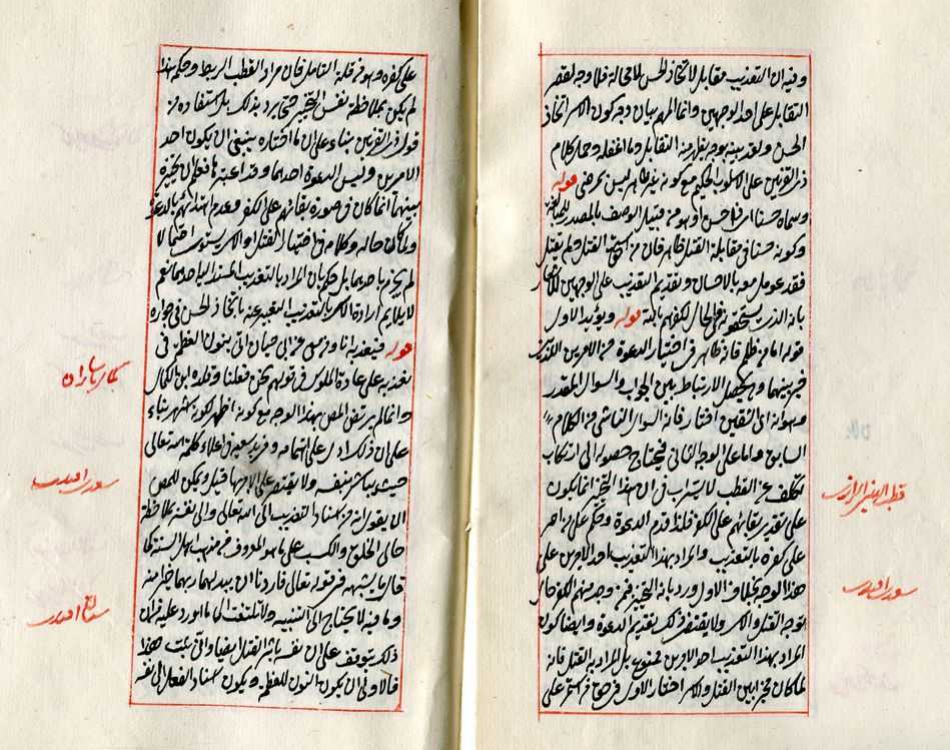 وفيه ان التعذيب مقابل لاتخاذ الحسن لا محالة فلا وجه لقصر
التقابل على احد الوجهين وانما المهم بيان وجه كون الاسر اتخاذ
الحسن ولقد بينه بوجه يظهر منه التقابل وما اغفله وحمل كلام
ذى القرنين على الاسلوب الحكيم مع كونه غير ظاهر ليس بمرضى قوله
وسماه حسنا اى ذا حسن او هو من قبيل الوصف بالمصدر للمبالغة
وكونه حسنا فى مقابلة القتل ظاهر فان من استحق القتل ولم يقتل
فقد عومل معه بالاحسان وتقديم التعذيب على الوجهين
بانه الذى يستحقونه فى الحال لكفرهم بالله قوله ويؤيد الاول
قوله اما من ظلم فانه ظاهر فى اختيار الدعوة من الامرين اللذين
خير بينهما وبه يحصل الارتباط بين الجواب والسوال المقدر
وهو انه اى الشقين اختار فانه السوال الناشى من الكلام
السابق واما على الوجه الثانى فيحتاج حصوله الى ارتكاب
تكلف عن القطب لا يستراب فى ان هذا التخيير انما يكون
على تقدير بقائهم على الكفر فلذا قدم الدعوة وحكم على من اصر
على كفره بالتعذيب والمراد بهذا التعذيب احد الامرين على
هذا الوجه بخلاف الاول ورد بانه التخيير فمن وجد منهم الكفر حال
توجه القتل والاسر ولا يقتضى ذلك تقديم الدعوة وايضا كون
المراد بهذا التعذيب احد الامرين ممنوع بل المراد به القتل فانه
لما كان مخيرا بين القتل والاسر اختار الاول فى حق من استمر على
قطب الدين الرازى
سعدى افندى
على كفره وهو من قلة التامل فان مراد القطب الربط وحكمه هذا
لم يكن بملاحظة نفس التخيير حتى يرد بذلك بل استفاده من
قول ذى القرنين بناء على ان ما اختاره ينبغى ان يكون احد
الامرين وليس الدعوة احدهما وقد اعتبرها فعلم ان تخيره
بينهما انما كان فى صورة بقائهم على الكفر وعدم اهتدائهم بالدعوة
ولما كان حاله وكلامه فى اختيار القتل او الاسر يستوى احتمالا
لم يجزم باحدهما بل حكم بان المراد بالتعذيب المسند اليه احدهما نعم
لا يلايم ارادة الاسر بالتعذيب المعبر عنه باتخاذ الحسن فى جواره
قوله فنعذبه انا ومن معى عن ابى حيان اتى بنون العظمة فى
نعذبه على عادة الملوك فى قولهم نحن فعلنا ونظره ابن الكمال
وانما لم يرتض المص بهذا الوجه مع كونه اظهر لكونه
على ان ذلك ادل على اهتمامه وفرط سعيه فى اعلاء كلمة الله تعالى
حيث يباشر بنفسه ولا يقتصر على الامر بها قيل ويمكن للمص
ان يقول انه من اسناد التعذيب الى الله تعالى والى نفسه بملاحظة
حالى الخلق والكسب على ما هو المعروف من مذهب اهل السنة كما
قال بما يشبهه فى قوله تعالى فاردنا ان يبدلهما ربهما خيرا منه
وما فيه لا يحتاج الى التنبيه ولا تلتفت الى ما اورد عليه من ان
ذلك يتوقف على ان نفسه باشر القتل ايضا وانى يثبت هذا
فالاولى ان يكون النون للعظمة ويكون اسناد الفعل الى نفسه
كمال پاشا زاده
سعدى افندى
سنان افندى